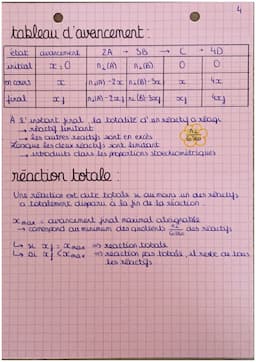 4
tableau d'avancement :
état avancement 2A → 3B → C + 4D
initial x=0 nᵢ(A) nᵢ(B) 0 0
en cours x nᵢ(A)-2x nᵢ(B)-3x x 4x
final xf nᵢ(A)-2xf nᵢ(B)-3xf xf 4xf
À l'instant final, la totalité d'un réactif a réagi
↳ réactif limitant
↳ les autres réactifs sont en excès
Lorsque les deux réactifs sont limitant
↳ introduits dans les proportions stoechiométriques
réaction totale :
Une réaction est dite totale si au moins un des réactifs
a totalement disparu à la fin de la réaction.
xmax = avancement final maximal atteignable
↳ correspond au minimum des quotients des réactifs
↳ si xf = xmax ⇒ réaction totale
↳ si xf < xmax ⇒ réaction pas totale, il reste de tous
les réactifs